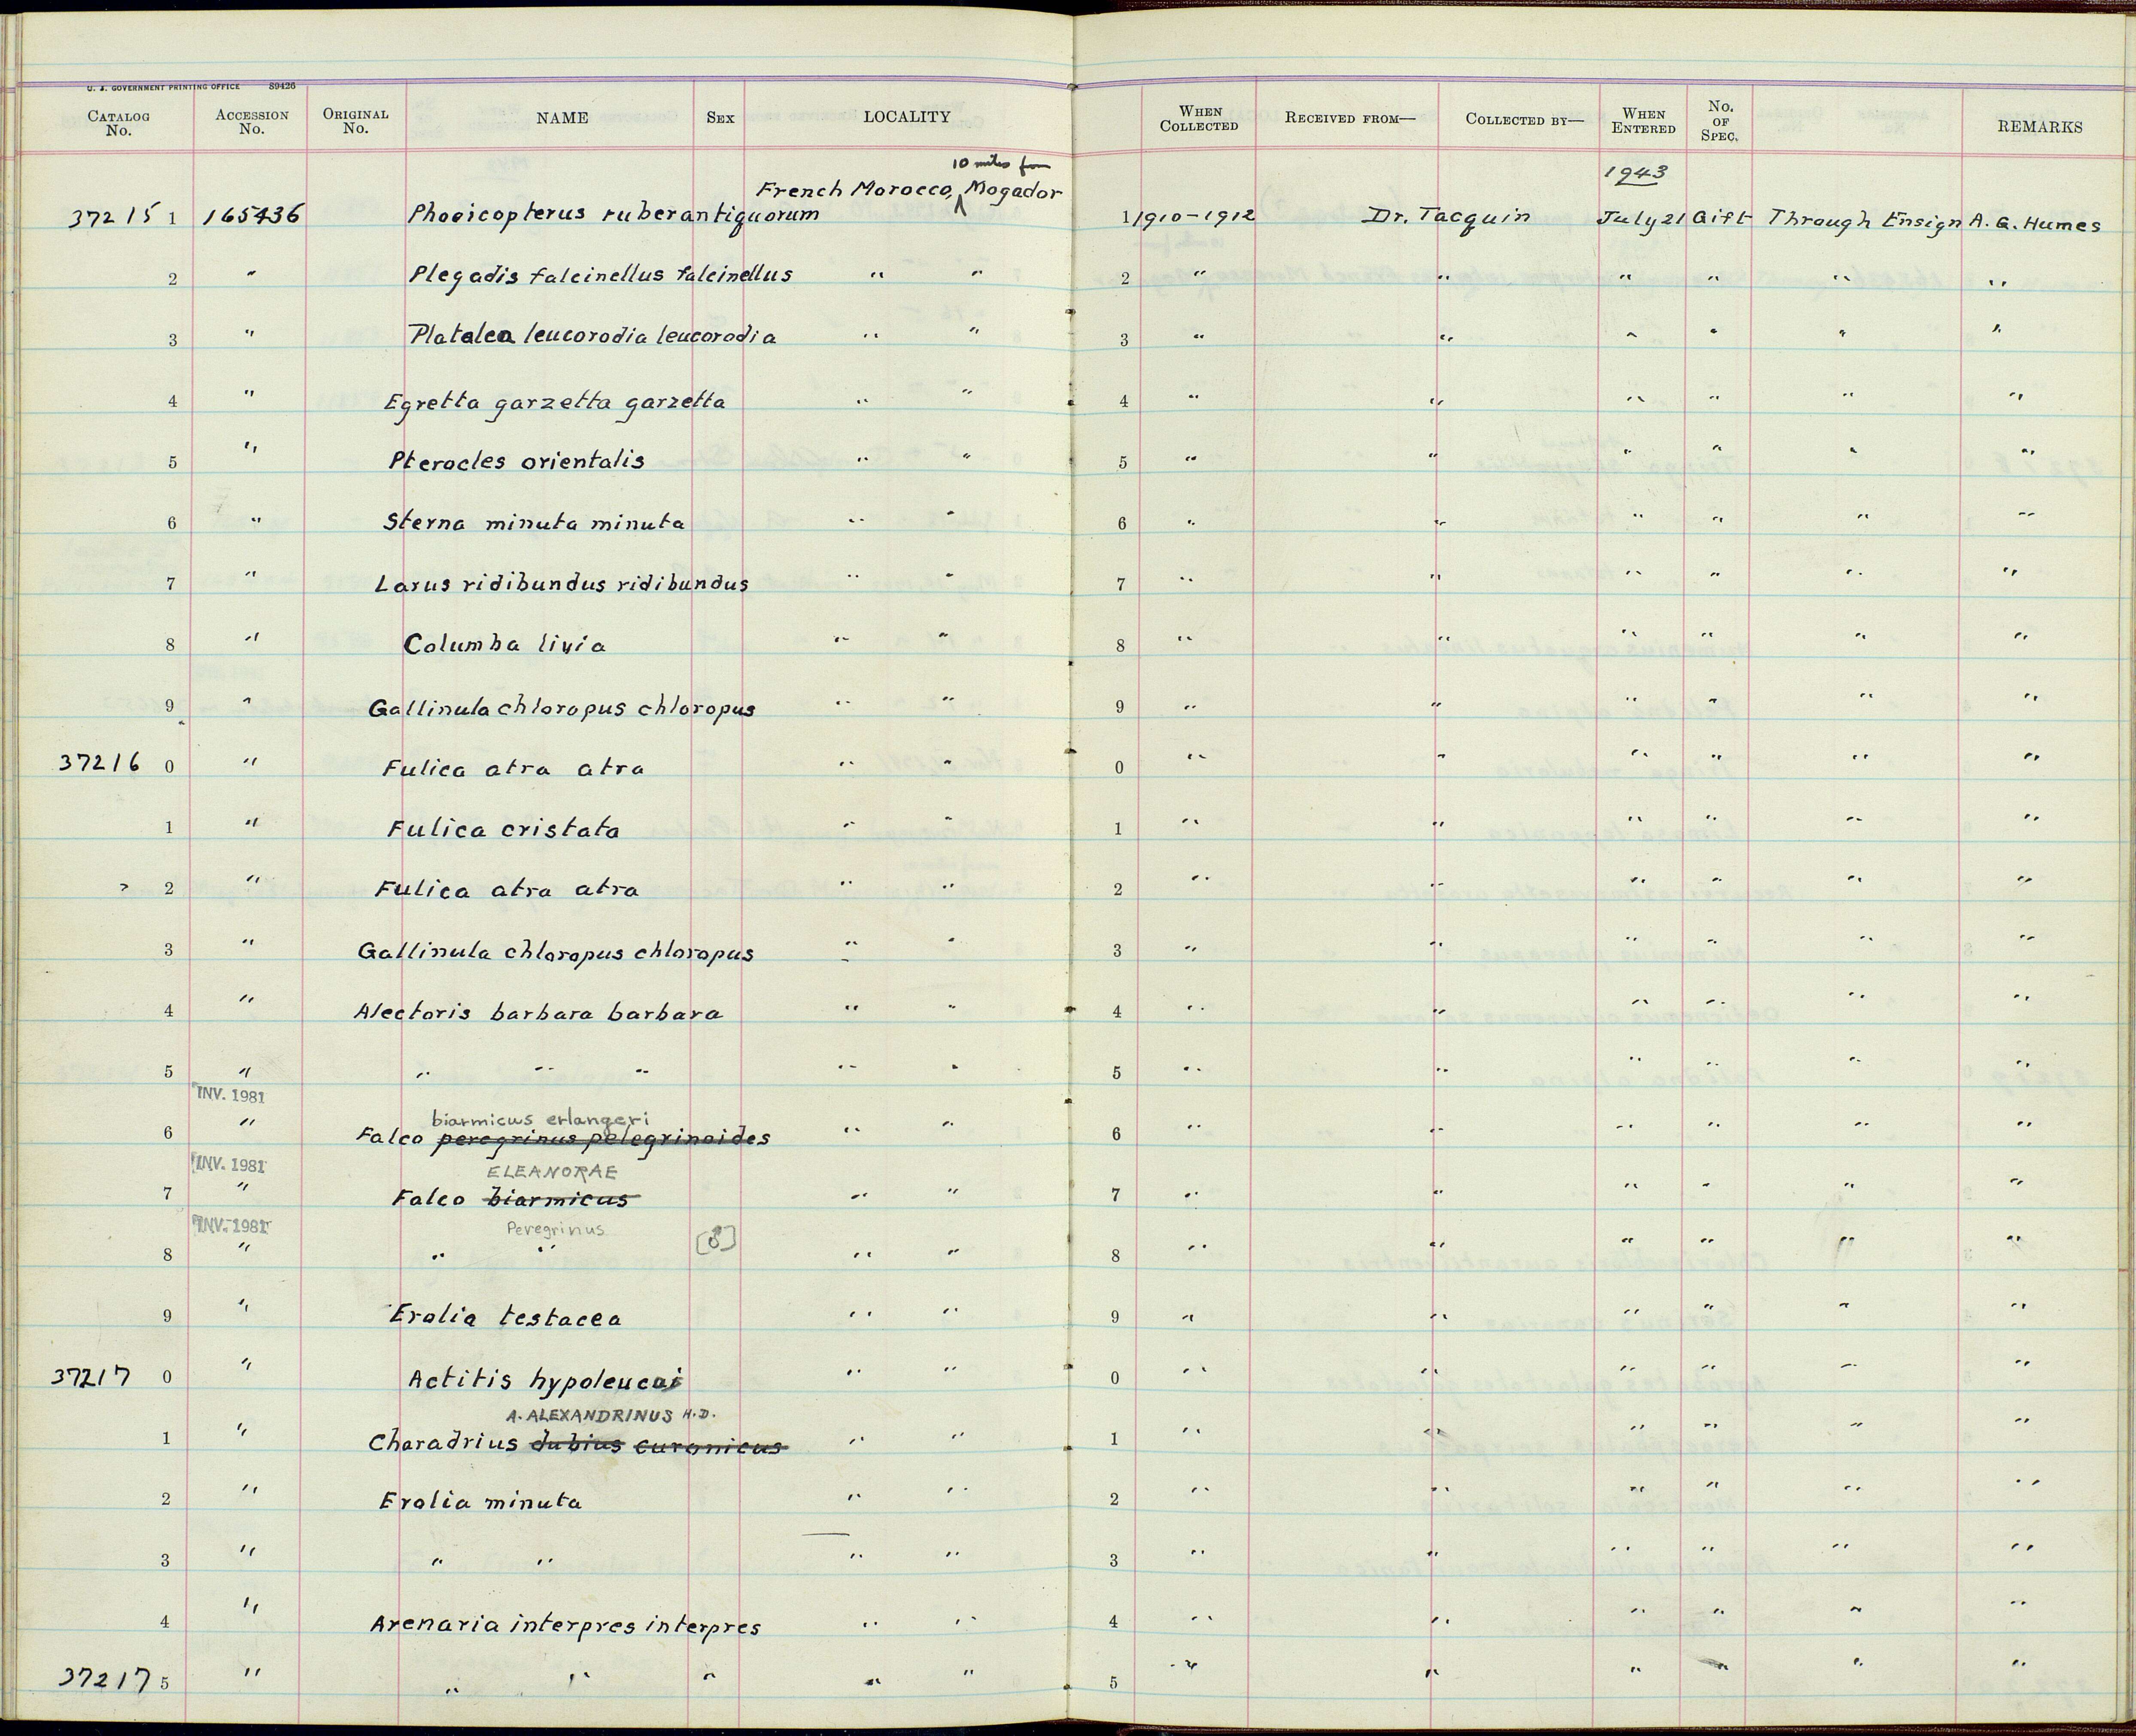 U. S. GOVERNMENT PRINTING OFFICE 89426
CATALOG No. ACCESSION No. ORIGINAL No. NAME SEX LOCALITY WHEN COLLECTED RECEIVED FROM— COLLECTED BY— WHEN ENTERED No. OF SPEC. REMARKS
10 miles from 1943
French Morocco, ʌ Mogador
37215 1 165436 Phoeicopterus ruber antiquorum 1 1910-1912 Dr. Tacquin July 21 Gift Through Ensign A. G. Humes
2 " Plegadis falcinellus falcinellus " " 2 " " " " " "
3 " Platalea leucorodia leucorodia " " 3 " " " " " "
4 " Egretta garzetta garzetta " " 4 " " " " " "
5 " Pterocles orientalis " " 5 " " " " " "
6 " Sterna minuta minuta " " 6 " " " " " "
7 " Larus ridibundus ridibundus " " 7 " " " " " "
8 " Columba livia " " 8 " " " " " "
9 " Gallinula chloropus chloropus " " 9 " " " " " "
37216 0 " Fulica atra atra " " 0 " " " " " "
1 " Fulica cristata " " 1 " " " " " "
2 " Fulica atra atra " " 2 " " " " " "
3 " Gallinula chloropus chloropus " " 3 " " " " " "
4 " Alectoris barbara barbara " " 4 " " " " " "
5 " " " " " " 5 " " " " " "
INV. 1981
biarmicus erlangeri
6 " Falco peregrinus pelegrinoides " " 6 " " " " " "
INV. 1981 ELEANORAE
7 " Falco biarmicus " " 7 " " " " " "
INV. 1981 Peregrinus
8 " " " [♂] " " 8 " " " " " "
9 " Erolia testacea " " 9 " " " " " "
37217 0 " Actitis hypoleucos " " 0 " " " " " "
A. ALEXANDRINUS H.D.
1 " Charadrius dubius curonicus " " 1 " " " " " "
2 " Erolia minuta " " 2 " " " " " "
3 " " " " " 3 " " " " " "
4 " Arenaria interpres interpres " " 4 " " " " " "
37217 5 " " " " " " 5 " " " " " "